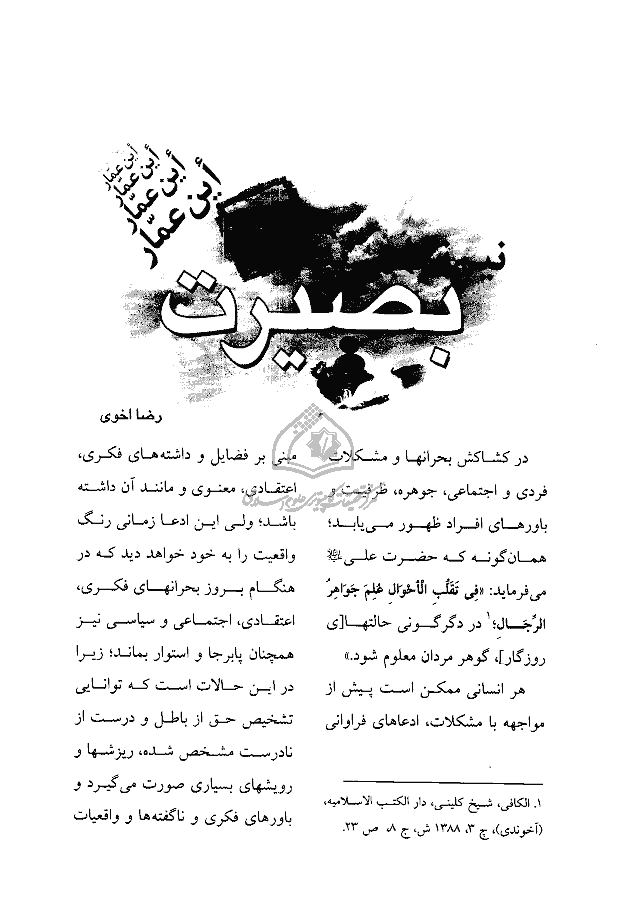 أین عمّار
أین عمّار
أین عمّار
أین عمّار
بصیرت
رضا اخوی
در کشاکش بحرانها و مشکلات
فردی و اجتماعی، جوهره، ظرفیت و
باورهای افراد ظهور می‌یابد؛
همان‌گونه که حضرت علی
می‌فرماید: «فِی تَقَلُّبِ الْأَحْوَالِ عُلِمَ جَوَاهِرُ
الرِّجَالِ؛۱ در دگرگونی حالتها[ی
روزگار]، گوهر مردان معلوم شود.»
هر انسانی ممکن است پیش از
مواجهه با مشکلات، ادعاهای فراوانی
۱. الکافی، شیخ کلینی، دار الکتب الاسلامیه،
(آخوندی)، چ ۳، ۱۳۸۸ ش، ج ۸، ص ۲۳.
مبنی بر فضایل و داشته‌های فکری،
اعتقادی، معنوی و مانند آن داشته
باشد؛ ولی این ادعا زمانی رنگ
واقعیت را به خود خواهد دید که در
هنگام بروز بحرانهای فکری،
اعتقادی، اجتماعی و سیاسی نیز
همچنان پابرجا و استوار بماند؛ زیرا
در این حالات است که توانایی
تشخیص حق از باطل و درست از
نادرست مشخص شده، ریزشها و
رویشهای بسیاری صورت می‌گیرد و
باورهای فکری و ناگفته‌ها و واقعیات